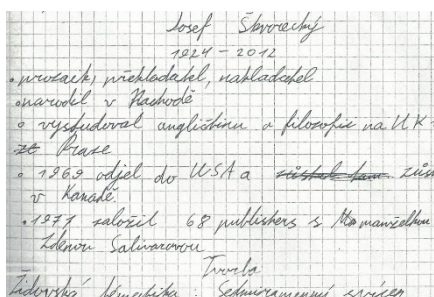 Josef Škvorecký
1924 - 2012
• prozaik, překladatel, nakladatel
• narodil v Náchodě
• vystudoval angličtinu a filozofii na UK
Praze
• 1969 odjel do USA a
v Kanadě.
• 1971 založil 68 publishers s manželkou
Zdenou Salivarovou
Tvorba
Židovská Sedmiramenný svícen